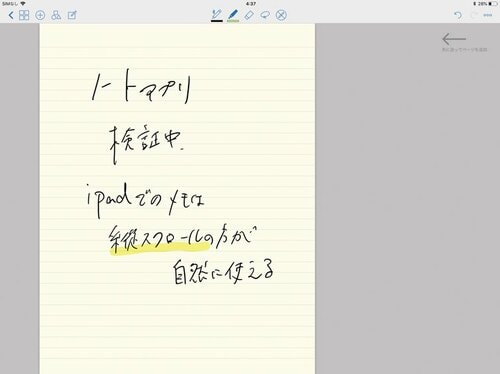 SIMなし
4:37
28%
ノートアプリ
検証中.
ipadでのメモは
縦スクロールの方が
自然に使える